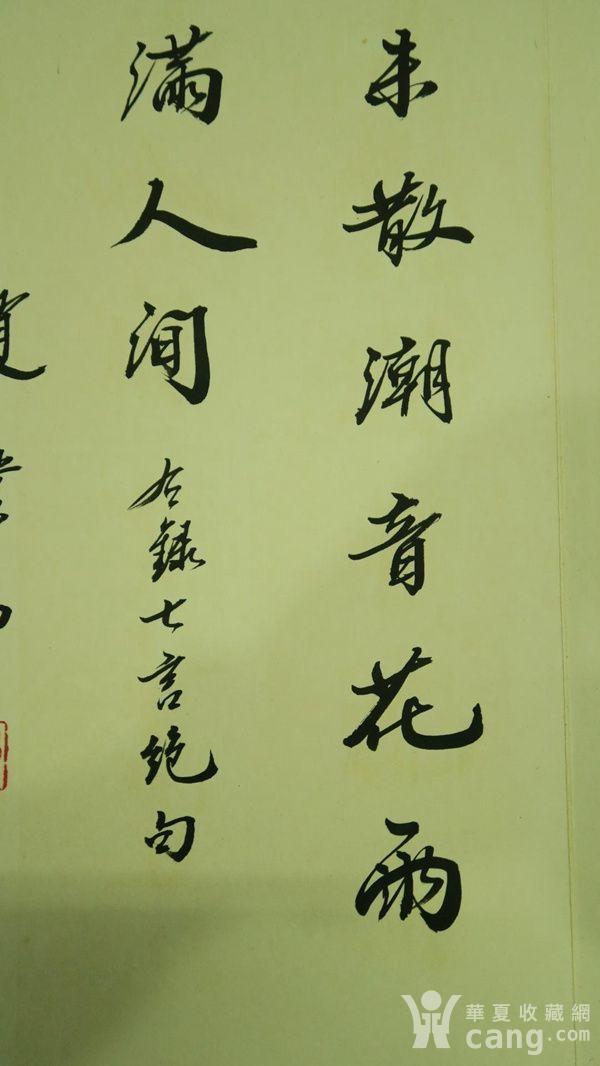 未散潮音花雨
滿人间
右錄七言绝句
華夏收藏網
cang.com